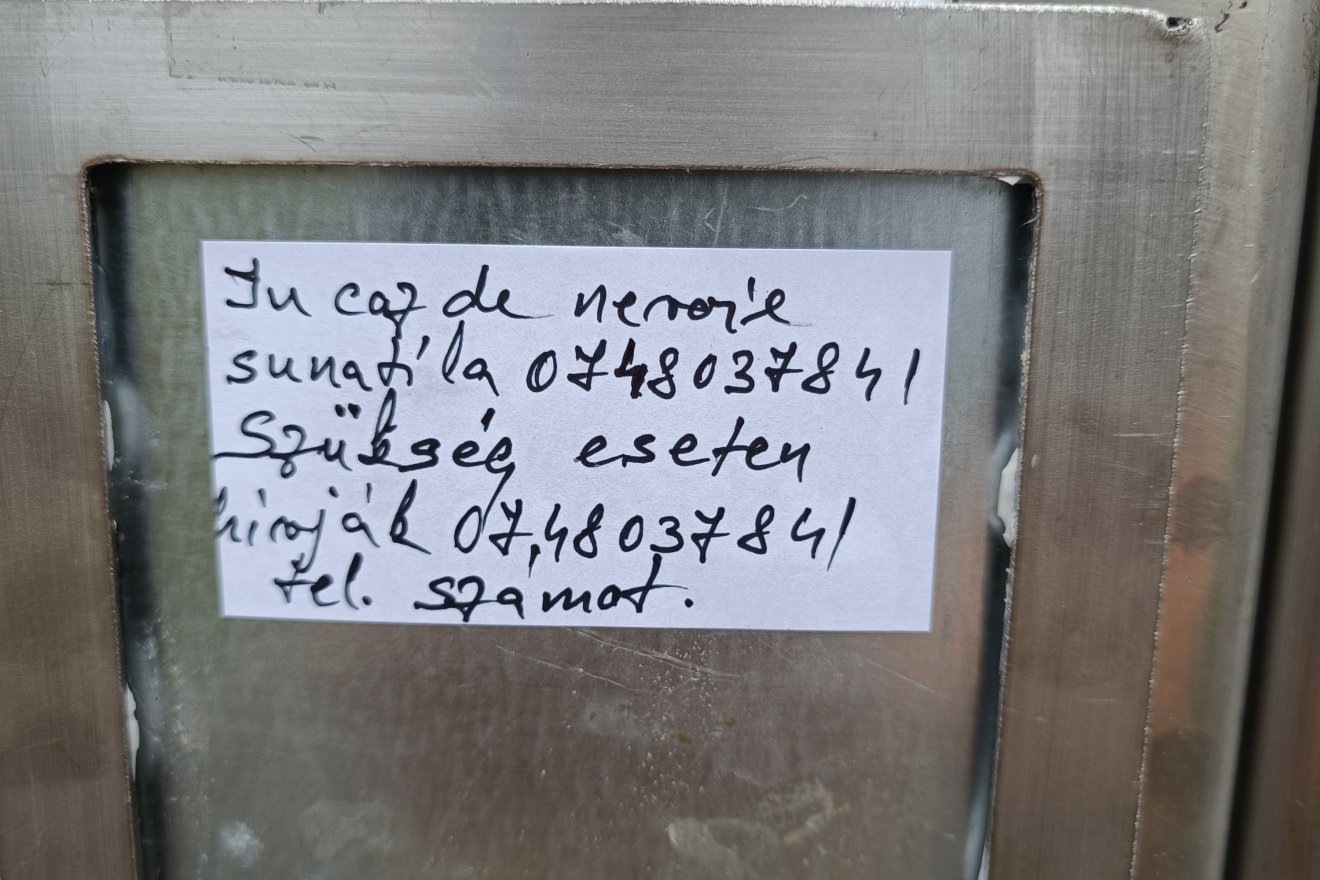 In caz de nevoie
sunati la 0748037841
Szükség eseten
hivják 0748037841
tel. számot.